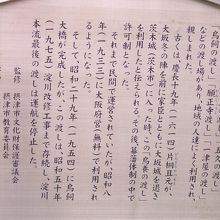 烏飼の渡し
「願正寺渡し」「一津屋の渡し」
などの渡し場もあり地域の人達によく利用され
親しまれた。
古くは、慶長十九年（一六一四）片桐且元が、
大坂冬の陣を前に家臣とともに大坂城を退き、
茨木城（茨木市）に入った時、この「鳥養の渡し」
を利用したと伝えられる。その後幕藩体制の中で
許可制として
それまで民間で運営されていたが、昭和八
年（一九三三）大阪府営（無料）で利用され
るようになった。
そして、昭和二十九年（一九五四）に鳥飼
大橋が完成したが、この渡しは、昭和五十年
（一九七五）淀川改修工事まで存続し、淀川
本流最後の渡しは運航を停止した。
監修 摂津市文化財保護審議会
摂津市教育委員会